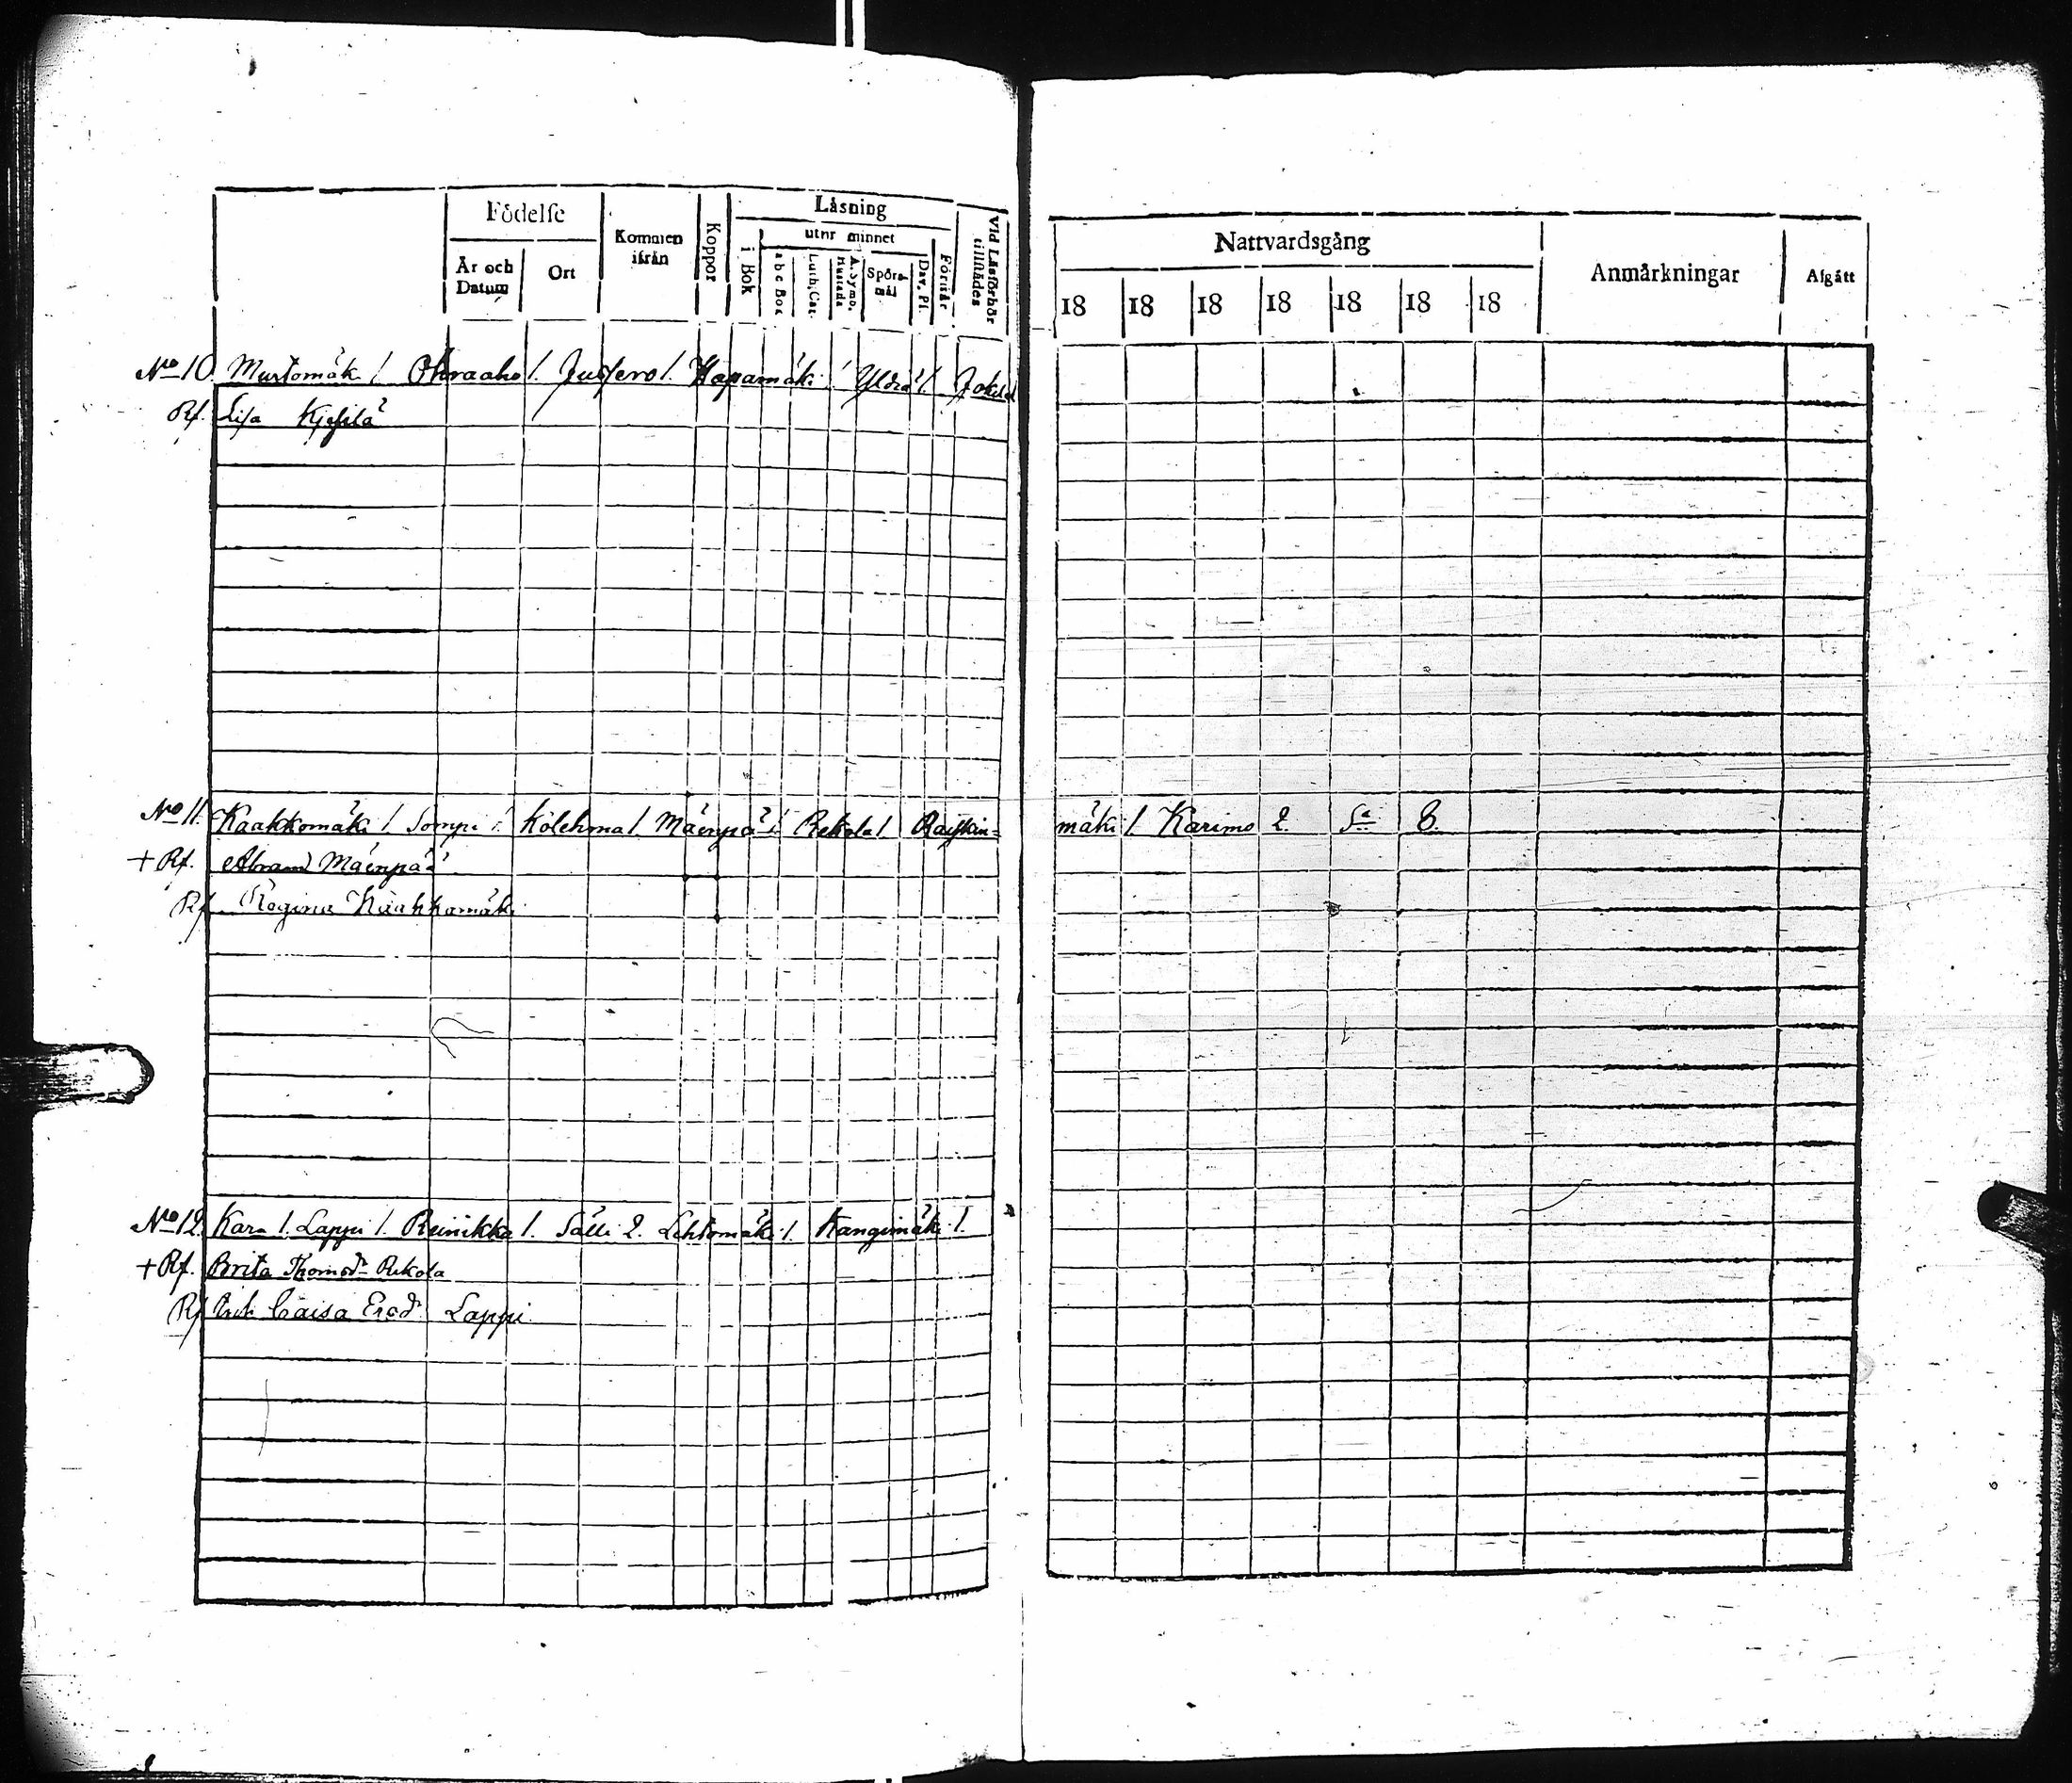 Födelse
Kommen ifrån
Koppor
Läsning
Vid Läsförhör tillstädes
År och Datum
Ort
i Bok
utur minnet
a b c Bok
Luth. Cat.
A. Symb. Hustafla
Spörsmål
Dav. Ps.
Förstår
Nattvardsgång
18 18 18 18 18 18 18
Anmärkningar
Afgått
No 10. Murtomäki 1. Ohraaho 1. Jussero 1. Hapamäki 1. Yldiä 1. Jokela
Rf. Lisa Kjesilä
No 11. Kaakkomäki 1. Sompi 1. Kolehma 1. Mäenpää 1. Rekola 1. Raiskin= mäki 1. Karimo 2. Sa 8.
+ Rf. Abram Mäenpää
Rf. Regina Kaakkomäki
No 12. Kara 1. Lappi 1. Reinikka 1. Sälli 2. Lehtomäki 1. Kangimäki 1.
+ Rf. Brita Thomsdr Rekola
Rf. Caisa Ersdr Lappi